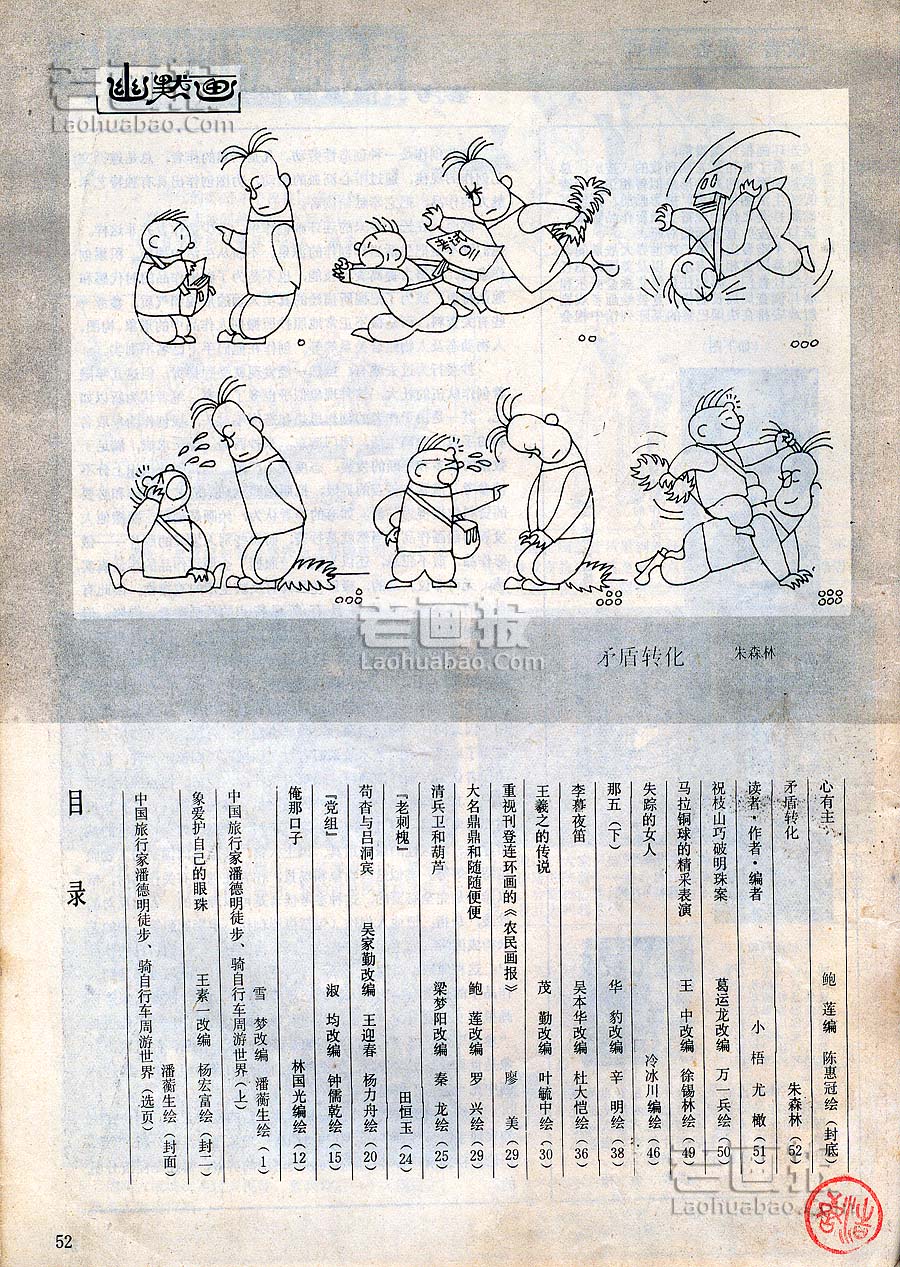 幽默画
老画报
Laohuabao.Com
考试
011
老画报
Laohuabao.Com
矛盾转化 朱森林
目录
中国旅行家潘德明徒步、骑自行车周游世界(选页)
潘蘅生绘(封面)
象爱护自己的眼珠 王素一改编 杨宏富绘(封二)
中国旅行家潘德明徒步、骑自行车周游世界(上)
雪 梦改编 潘蘅生绘(1)
俺那口子 林国光编绘(12)
『党组』 淑 均改编 钟儒乾绘(15)
荀香与吕洞宾 吴家勤改编 王迎春 杨力舟绘(20)
『老刺槐』 田恒玉(24)
清兵卫和葫芦 梁梦阳改编 秦 龙绘(25)
大名鼎鼎和随随便便 鲍 莲改编 罗 兴绘(29)
重视刊登连环画的《农民画报》 廖 美(29)
王羲之的传说 茂 勤改编 叶毓中绘(30)
李暮夜笛 吴本华改编 杜大恺绘(36)
那五(下) 华 豹改编 辛 明绘(38)
失踪的女人 冷冰川编绘(46)
马拉铜球的精采表演 王 中改编 徐锡林绘(49)
祝枝山巧破明珠案 葛运龙改编 万一兵绘(50)
读者·作者·编者 小 梧 尤 橄(51)
矛盾转化 朱森林(52)
心有主 鲍 莲编 陈惠冠绘(封底)
老画报
Laohuabao.Com
52